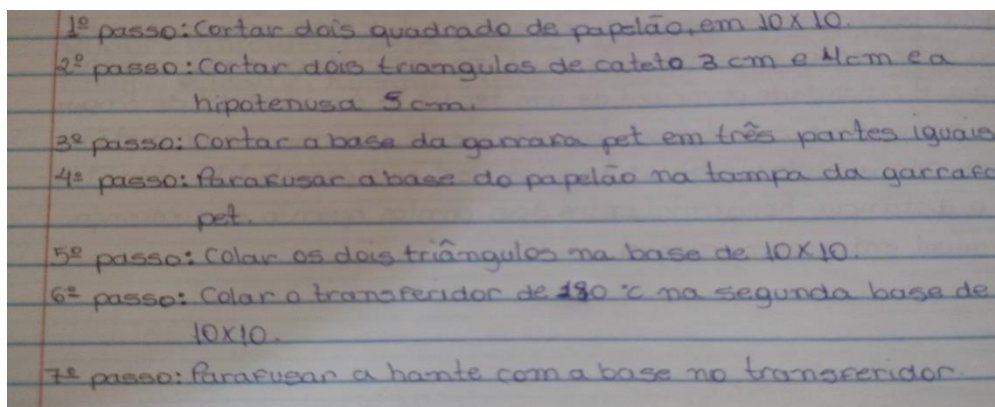 1º passo: Cortar dois quadrado de papelão, em 10x10.
2º passo: Cortar dois triangulos de cateto 3 cm e 4cm e a
hipotenusa 5 cm.
3º passo: Cortar a base da garrafa pet em três partes iguais
4º passo: Parafusar a base do papelão na tampa da garrafa
pet.
5º passo: Colar os dois triângulos na base de 10x10.
6º passo: Colar o transferidor de 180 °c na segunda base de
10x10.
7º passo: Parafusar a hante com a base no transferidor.